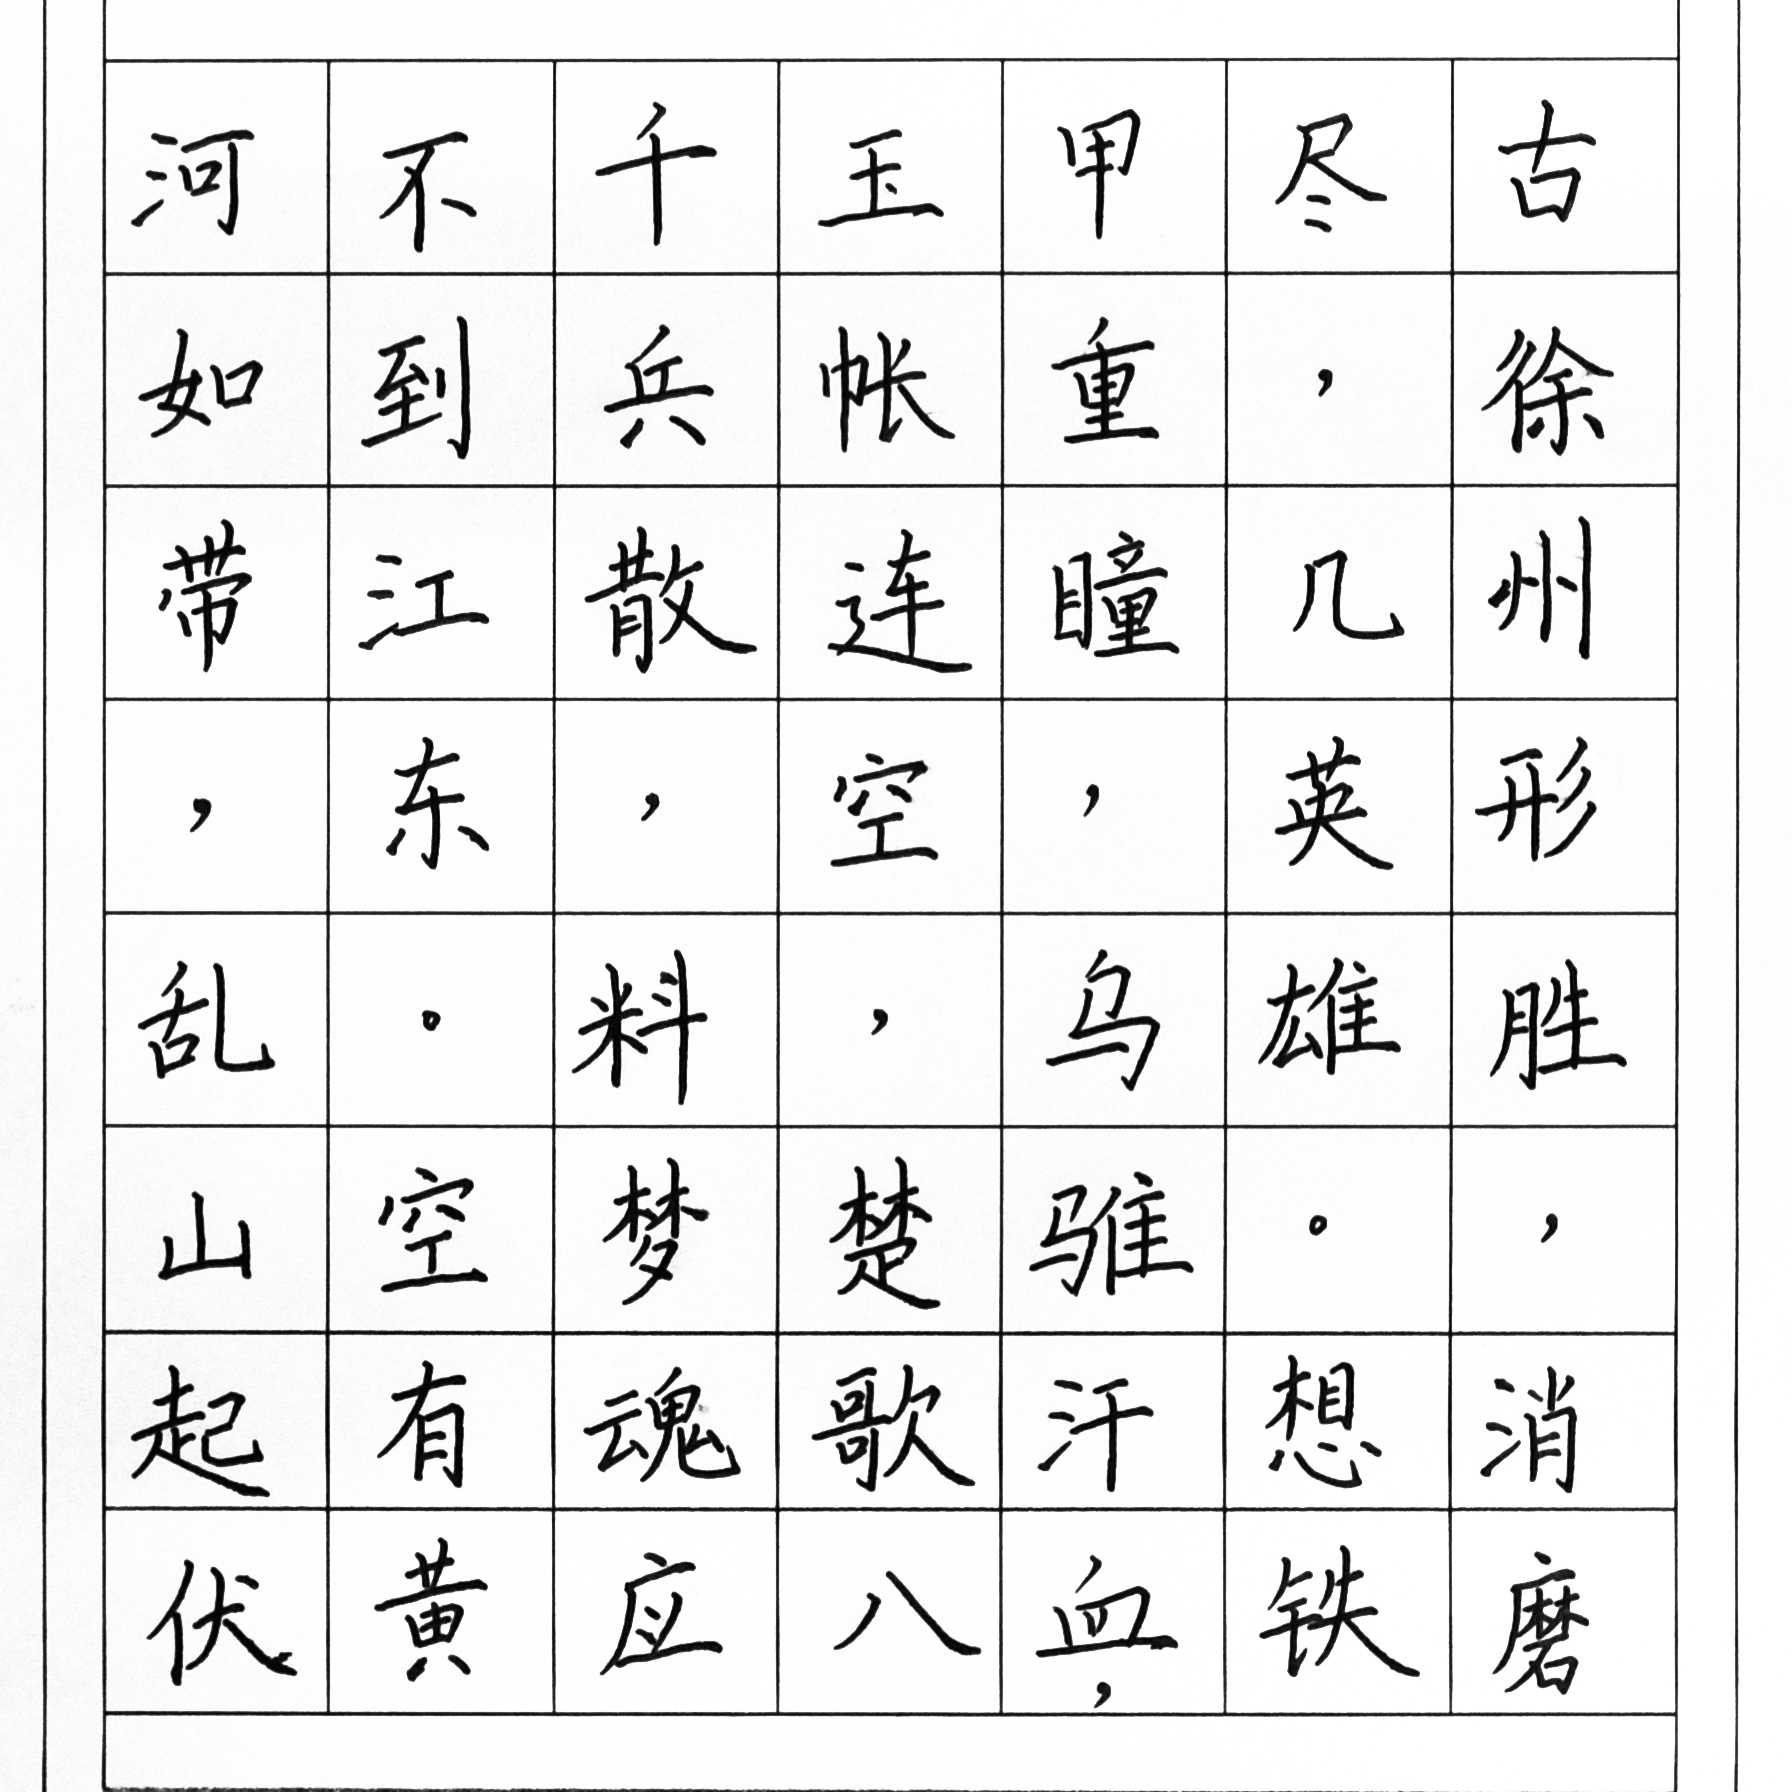 古徐州形胜，消磨
尽，几英雄。想铁
甲重瞳，乌骓汗血，
玉帐连空，楚歌八
千兵散，料梦魂应
不到江东。空有黄
河如带，乱山起伏